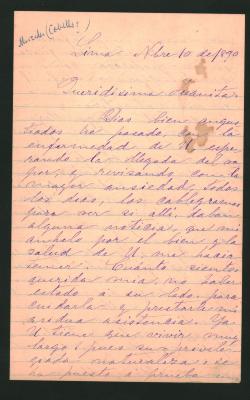 Mercedes (Cabello?)
Lima Nbre 10 de 1890
Queridisima Juanita:
Dias bien angus
tiados he pasado, con la
enfermedad de U, espe
rando la llegada del va
por, y revisando con la
mayor ansiedad, todos
los dias, los cablegramas
para ver si alli, daban
alguna noticia, que mi
anhelo por el bien y la
salud de U. me hacia
temer. Cuanto siento
querida mia, no haber
estado á su lado para
cuidarla y prestarle mi
asistencia. Ya
U tiene que vivir muy
largo; pues su privile
giada naturaleza se
ha puesto á prueba